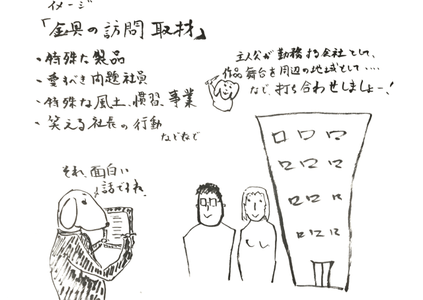 イメージ
「金具の訪問取材」
・特殊な製品
・愛すべき問題社員
・特殊な風土、慣習、事業
・笑える社長の行動
などなど
主人公が勤務する会社として、
作品舞台を周辺の地域として‥‥
など、打ち合わせしましょー！
それ、面白い
話ですね。